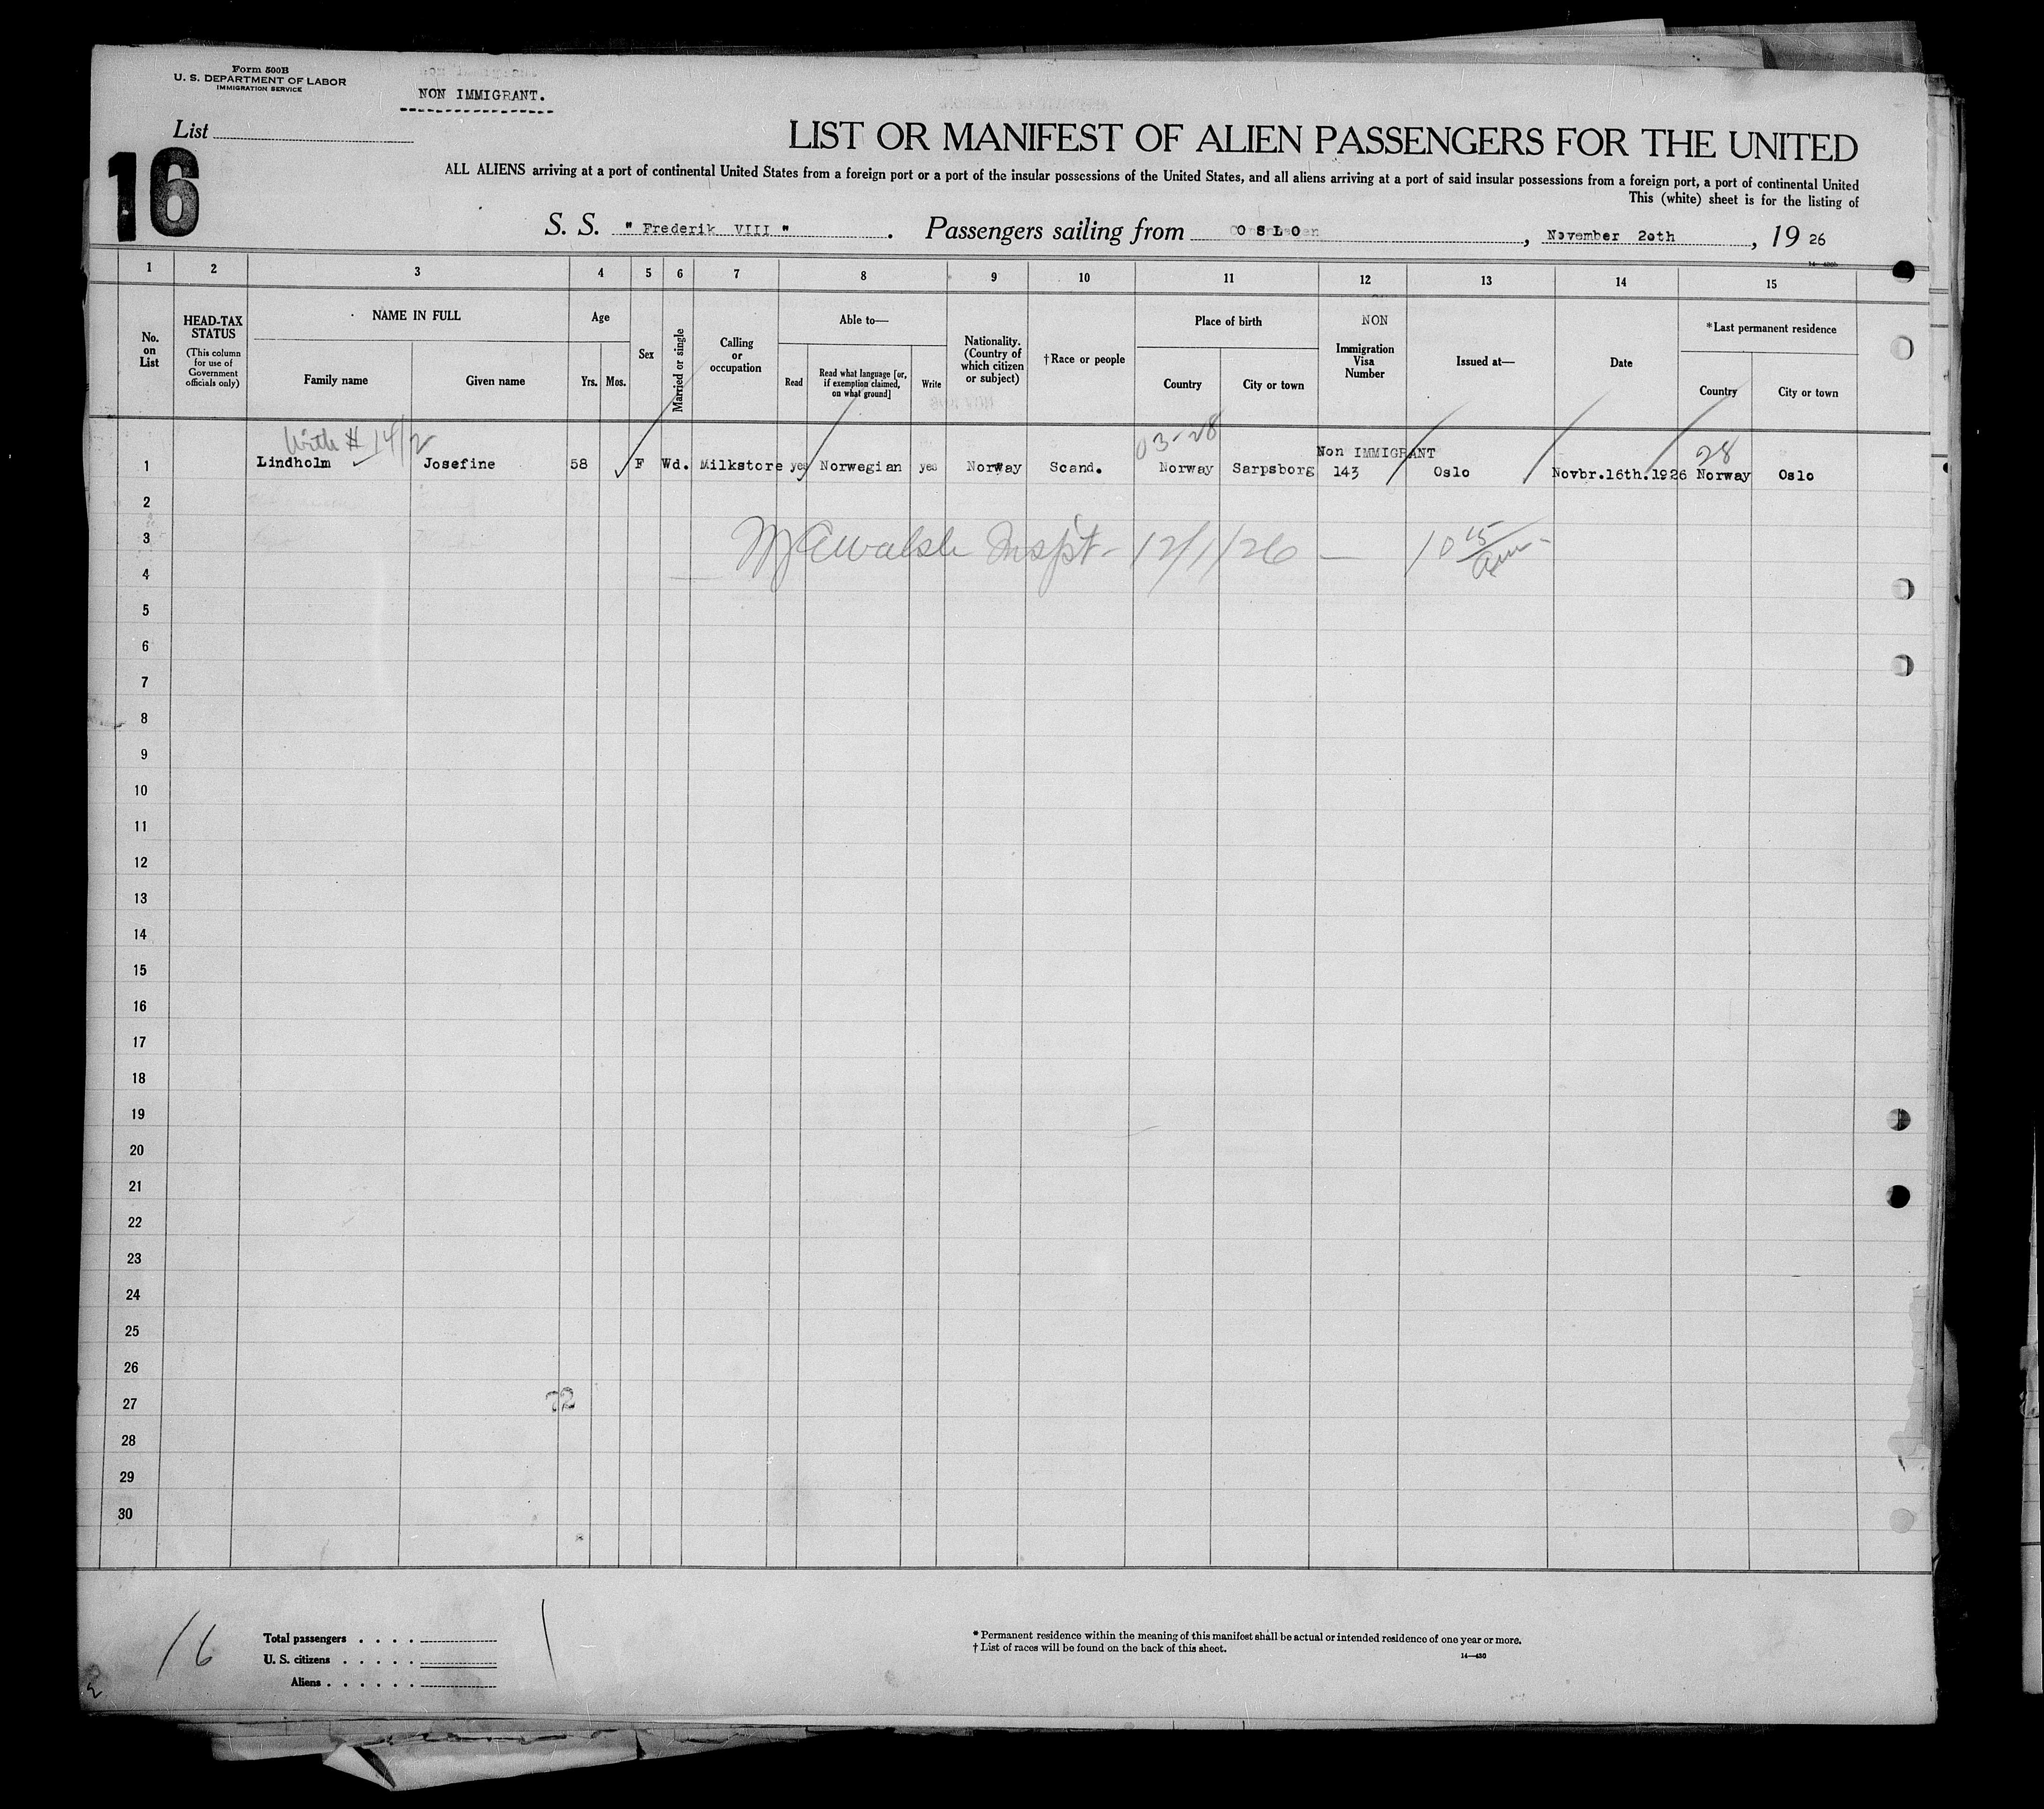 Form 500B
U. S. DEPARTMENT OF LABOR
IMMIGRATION SERVICE
NON IMMIGRANT.
List
16
LIST OR MANIFEST OF ALIEN PASSENGERS FOR THE UNITED
ALL ALIENS arriving at a port of continental United States from a foreign port or a port of the insular possessions of the United States, and all aliens arriving at a port of said insular possessions from a foreign port, a port of continental United
This (white) sheet is for the listing of
S. S. " Frederik VIII " . Passengers sailing from OSLO , November 20th , 19 26
1 2 3 4 5 6 7 8 9 10 11 12 13 14 15
No. on List
HEAD-TAX STATUS (This column for use of Government officials only)
NAME IN FULL
Family name Given name
Age
Yrs. Mos.
Sex
Married or single
Calling or occupation
Able to—
Read
Read what language [or, if exemption claimed, on what ground]
Write
Nationality. (Country of which citizen or subject)
†Race or people
Place of birth
Country City or town
NON
Immigration Visa Number
Issued at—
Date
*Last permanent residence
Country City or town
With # 14/2
03-28
Non IMMIGRANT
28
1 Lindholm Josefine 58 F Wd. Milkstore yes Norwegian yes Norway Scand. Norway Sarpsborg 143 Oslo Novbr.16th.1926 Norway Oslo
2
3 Walsh Inspt - 12/1/26 — 10 15/am -
4
5
6
7
8
9
10
11
12
13
14
15
16
17
18
19
20
21
22
23
24
25
26
27
72
28
29
30
16
Total passengers . . . .
U. S. citizens . . . . .
Aliens . . . . . .
1
* Permanent residence within the meaning of this manifest shall be actual or intended residence of one year or more.
† List of races will be found on the back of this sheet.
14—430